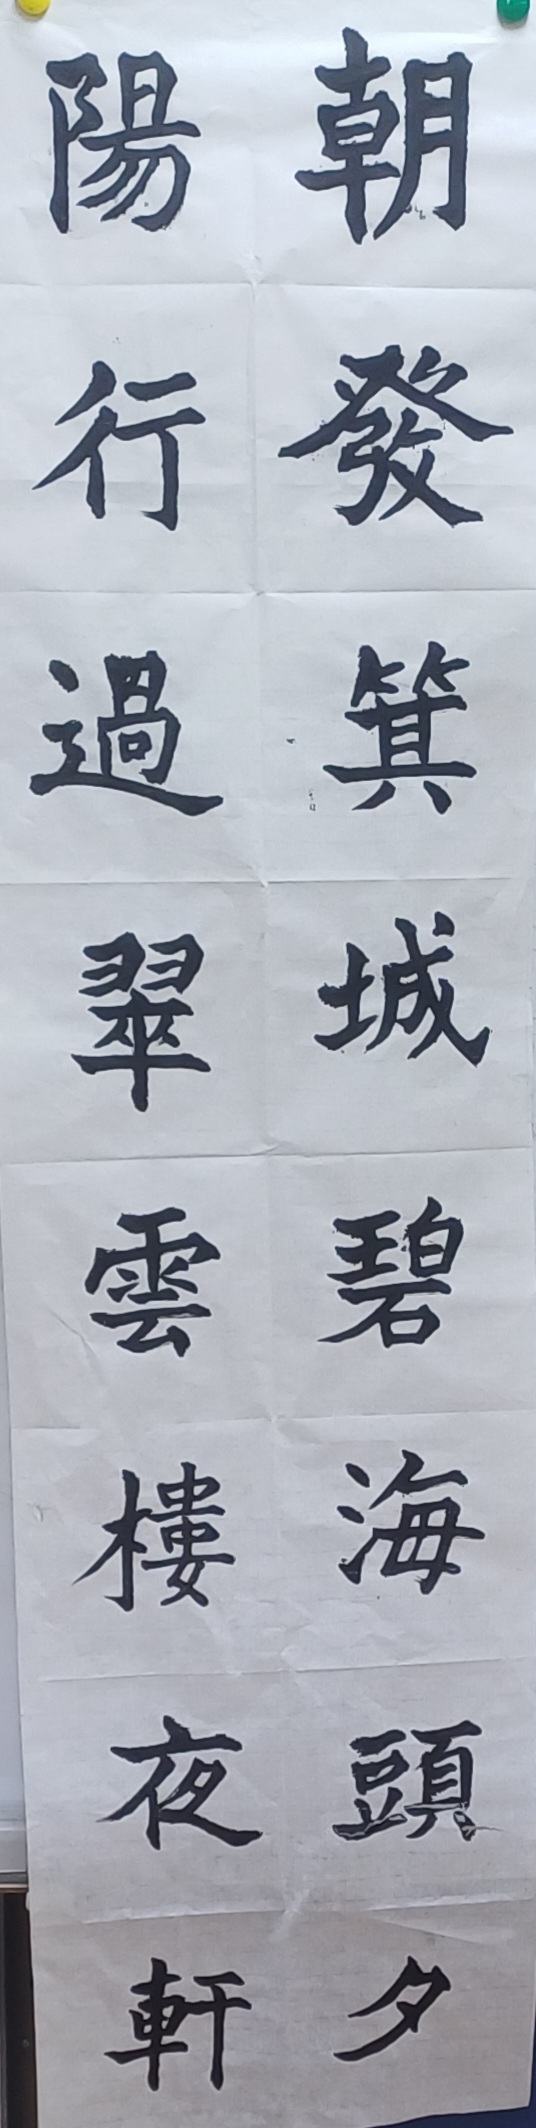 朝發箕城碧海頭夕
陽行過翠雲樓夜軒